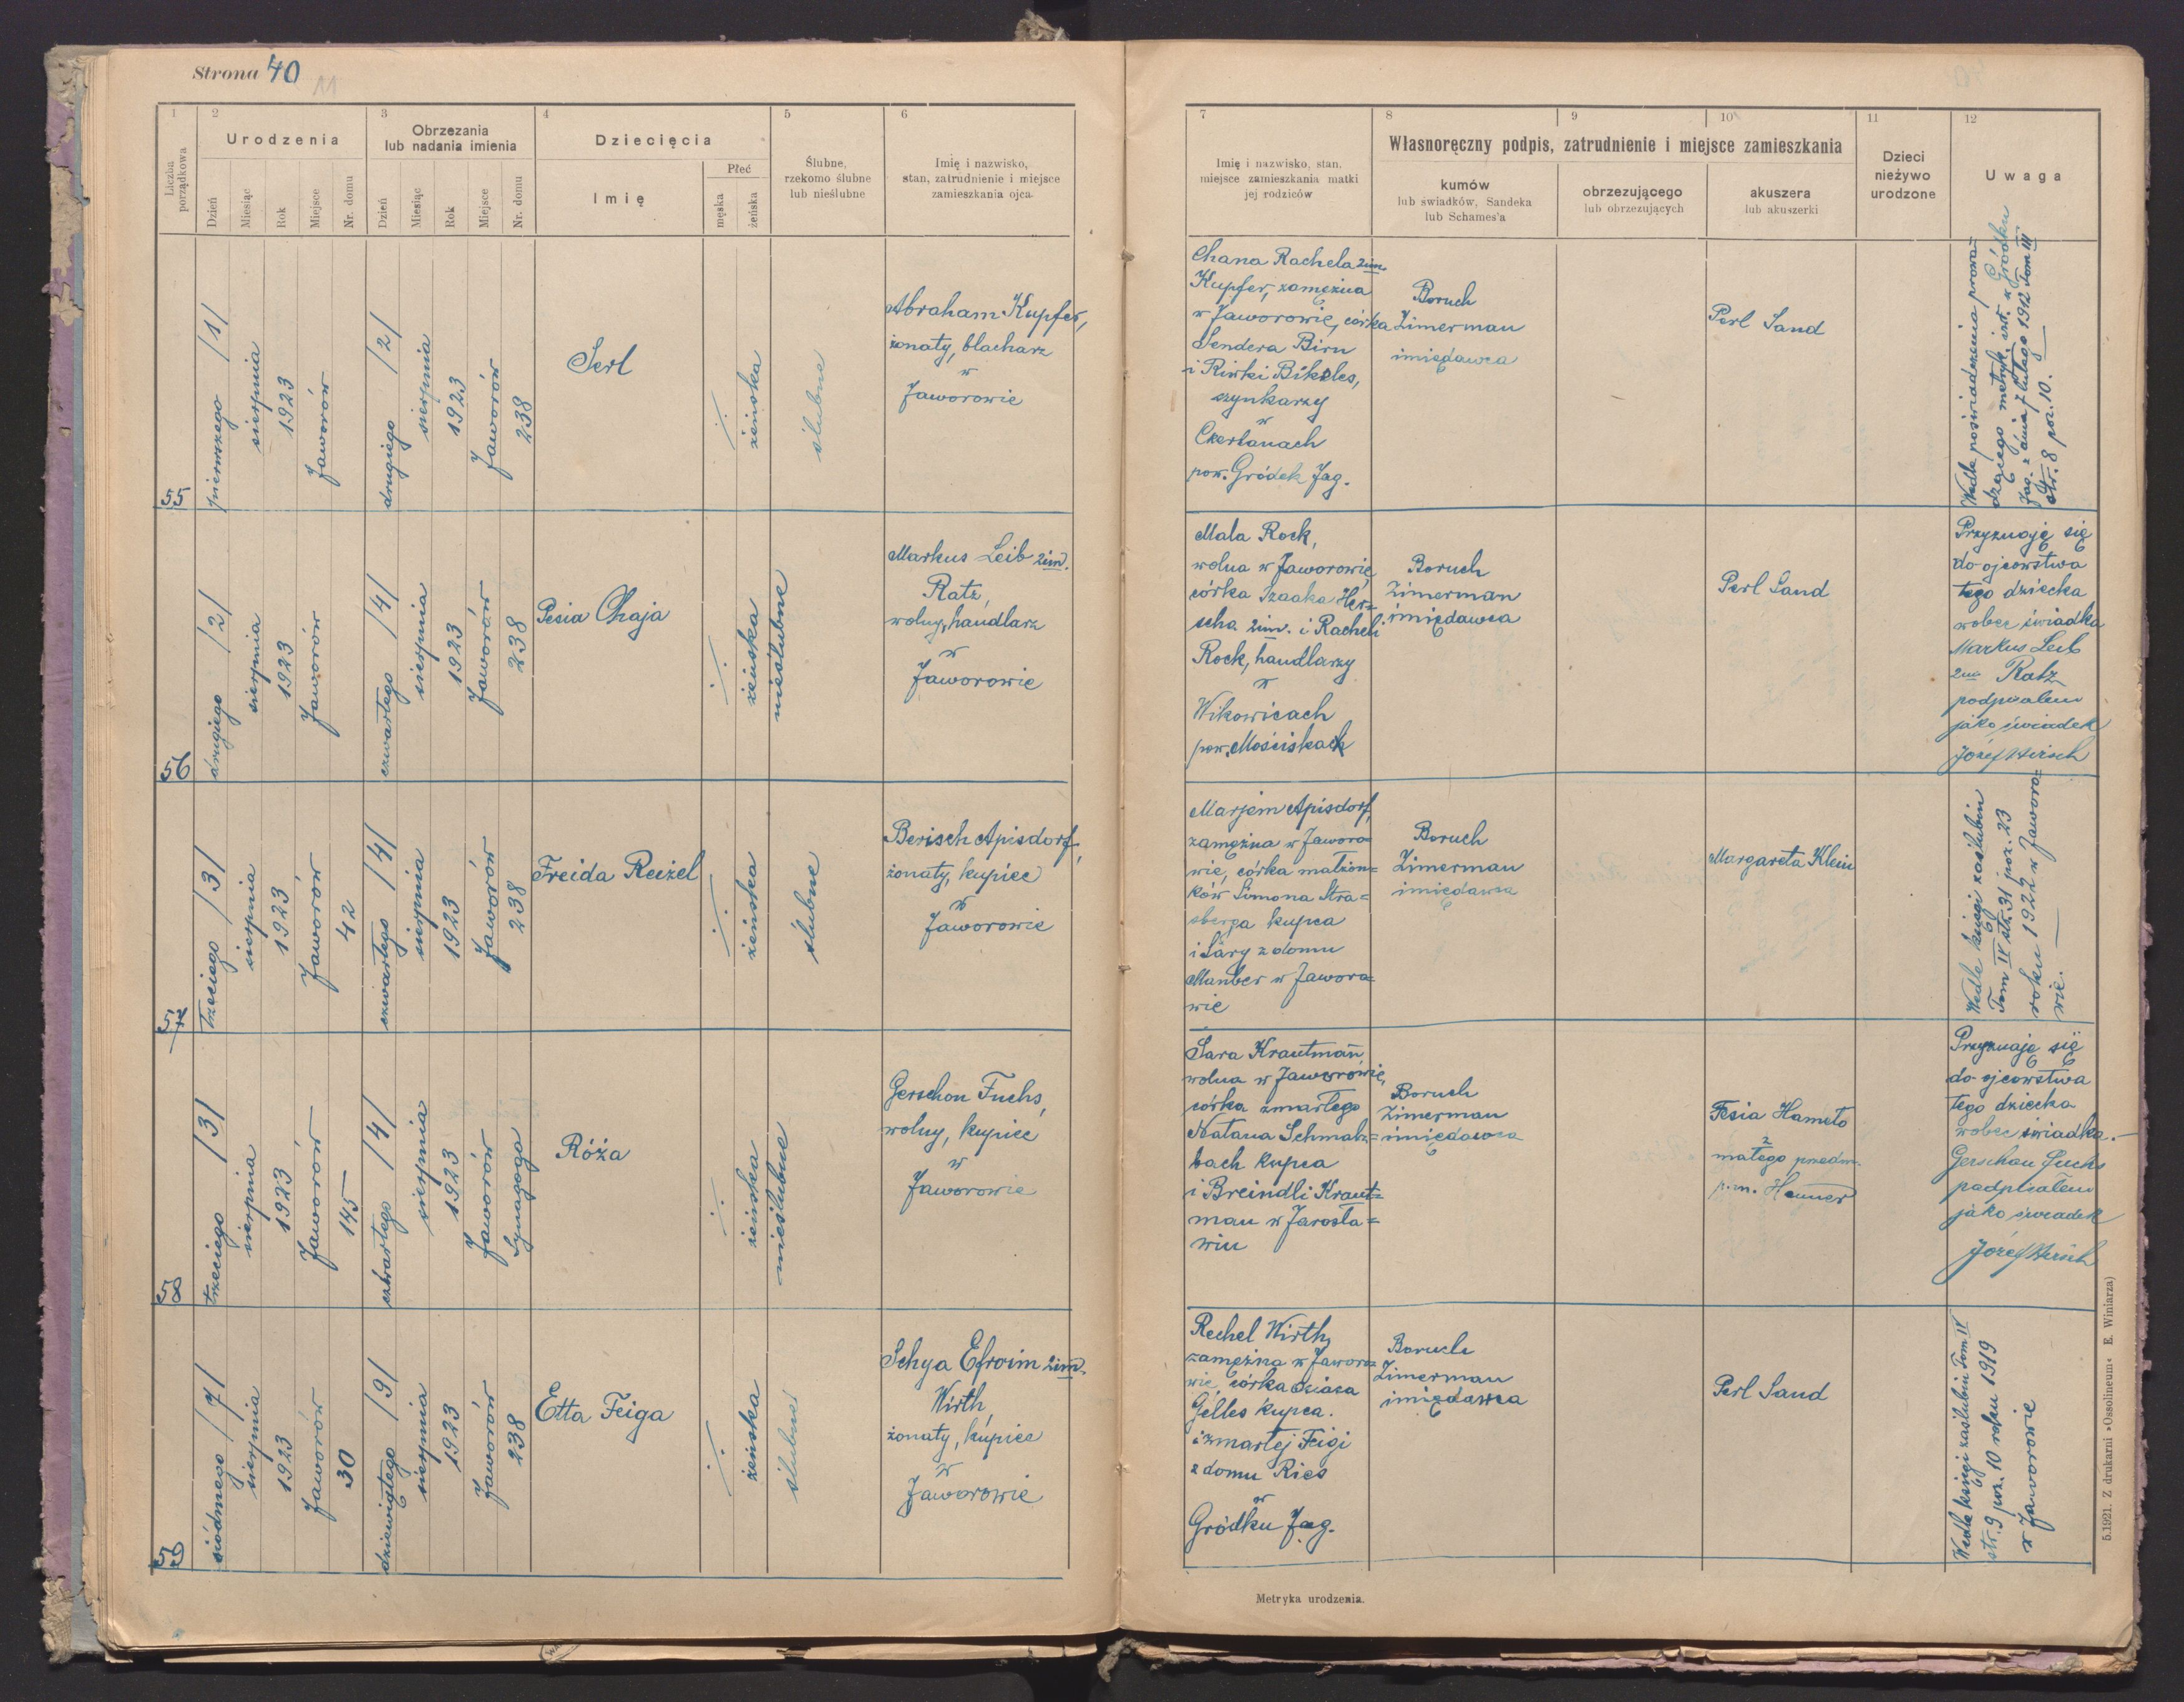 Strona 40
11
1
2
Urodzenia
3
Obrzezania
lub nadania imienia
4
Dziecięcia
5
Ślubne,
rzekomo ślubne
lub nieślubne
6
Imię i nazwisko,
stan, zatrudnienie i miejsce
zamieszkania ojca
Liczba
porządkowa
Dzień
Miesiąc
Rok
Miejsce
Nr. domu
Dzień
Miesiąc
Rok
Miejsce
Nr. domu
Imię
Płeć
męska
żeńska
7
Imię i nazwisko, stan,
miejsce zamieszkania matki
jej rodziców
8
9
10
Własnoręczny podpis, zatrudnienie i miejsce zamieszkania
kumów
lub świadków, Sandeka
lub Schames'a
obrzezującego
lub obrzezujących
akuszera
lub akuszerki
11
Dzieci
nieżywo
urodzone
12
Uwaga
55
pierwszego /1/
sierpnia
1923
Jaworów
drugiego /2/
sierpnia
1923
Jaworów
238
Serl
żeńska
ślubne
Abraham Kupfer,
żonaty, blacharz
w
Jaworowie
Chana Rachela 2im.
Kupfer, zamężna
w Jaworowie, córka
Sendera Birn
i Riwki Bikeles,
szynkarzy
w
Czerlanach
pow. Gródek Jag.
Boruch
Zimerman
imiędawca
Perl Sand
Wedle poświadczenia prowa-
dzącego metryk. izr. z Gródku
Jag. z dnia 7 lutego 1912 Tom III
str. 8 poz. 10.
56
drugiego /2/
sierpnia
1923
Jaworów
czwartego /4/
sierpnia
1923
Jaworów
238
Pesia Chaja
żeńska
nieślubne
Markus Leib 2im.
Ratz,
wolny, handlarz
w
Jaworowie
Mala Rock,
wolna w Jaworowie,
córka Izaaka Her=
scha 2im. i Racheli
Rock, handlarzy
w
Wikowicach
pow. Mościskach
Boruch
Zimerman
imiędawca
Perl Sand
Przyznaję się
do ojcowstwa
tego dziecka
wobec świadka
Markus Leib
2im Ratz
podpisałem
jako świadek
Józef Hirsch
57
trzeciego /3/
sierpnia
1923
Jaworów
42
czwartego /4/
sierpnia
1923
Jaworów
238
Freida Reizel
żeńska
ślubne
Berisch Apisdorf,
żonaty, kupiec
w
Jaworowie
Marjem Apisdorf,
zamężna w Jaworo=
wie, córka małżon=
ków Simona Stra=
sberga kupca
i Sary z domu
Manber w Jaworo=
wie
Boruch
Zimerman
imiędawca
Margareta Klein
Wedle księgi zaślubin
Tom IV str. 31 poz. 23
roku 1922 w Jaworo=
wie.
58
trzeciego /3/
sierpnia
1923
Jaworów
145
czwartego /4/
sierpnia
1923
Jaworów
Synagoga
Róża
żeńska
nieślubne
Gerschon Fuchs,
wolny, kupiec
w
Jaworowie
Sara Krautman,
wolna w Jaworowie,
córka zmarłego
Natana Schmalz=
bach kupca
i Breindli Kraut=
man w Jarosła=
wiu
Boruch
Zimerman
imiędawca
Fesia Hameto
z
małego przedm.
Przyznaję się
do ojcowstwa
tego dziecka
wobec świadka.
Gerschon Fuchs
podpisałem
jako świadek
Józef Hirsch
59
siódmego /7/
sierpnia
1923
Jaworów
30
dziewiątego /9/
sierpnia
1923
Jaworów
238
Etta Feiga
żeńska
ślubne
Schya Efroim 2im.
Wirth,
żonaty, kupiec
w
Jaworowie
Rechel Wirth,
zamężna w Jaworo=
wie, córka Oziasa
Gelles kupca.
i zmarłej Feigi
z domu Ries
w
Gródku Jag.
Boruch
Zimerman
imiędawca
Perl Sand
Wedle księgi zaślubin Tom IV
str. 9 poz. 10 roku 1919
w Jaworowie
Metryka urodzenia.
5.1921. Z drukarni »Ossolineum« E. Winiarza)